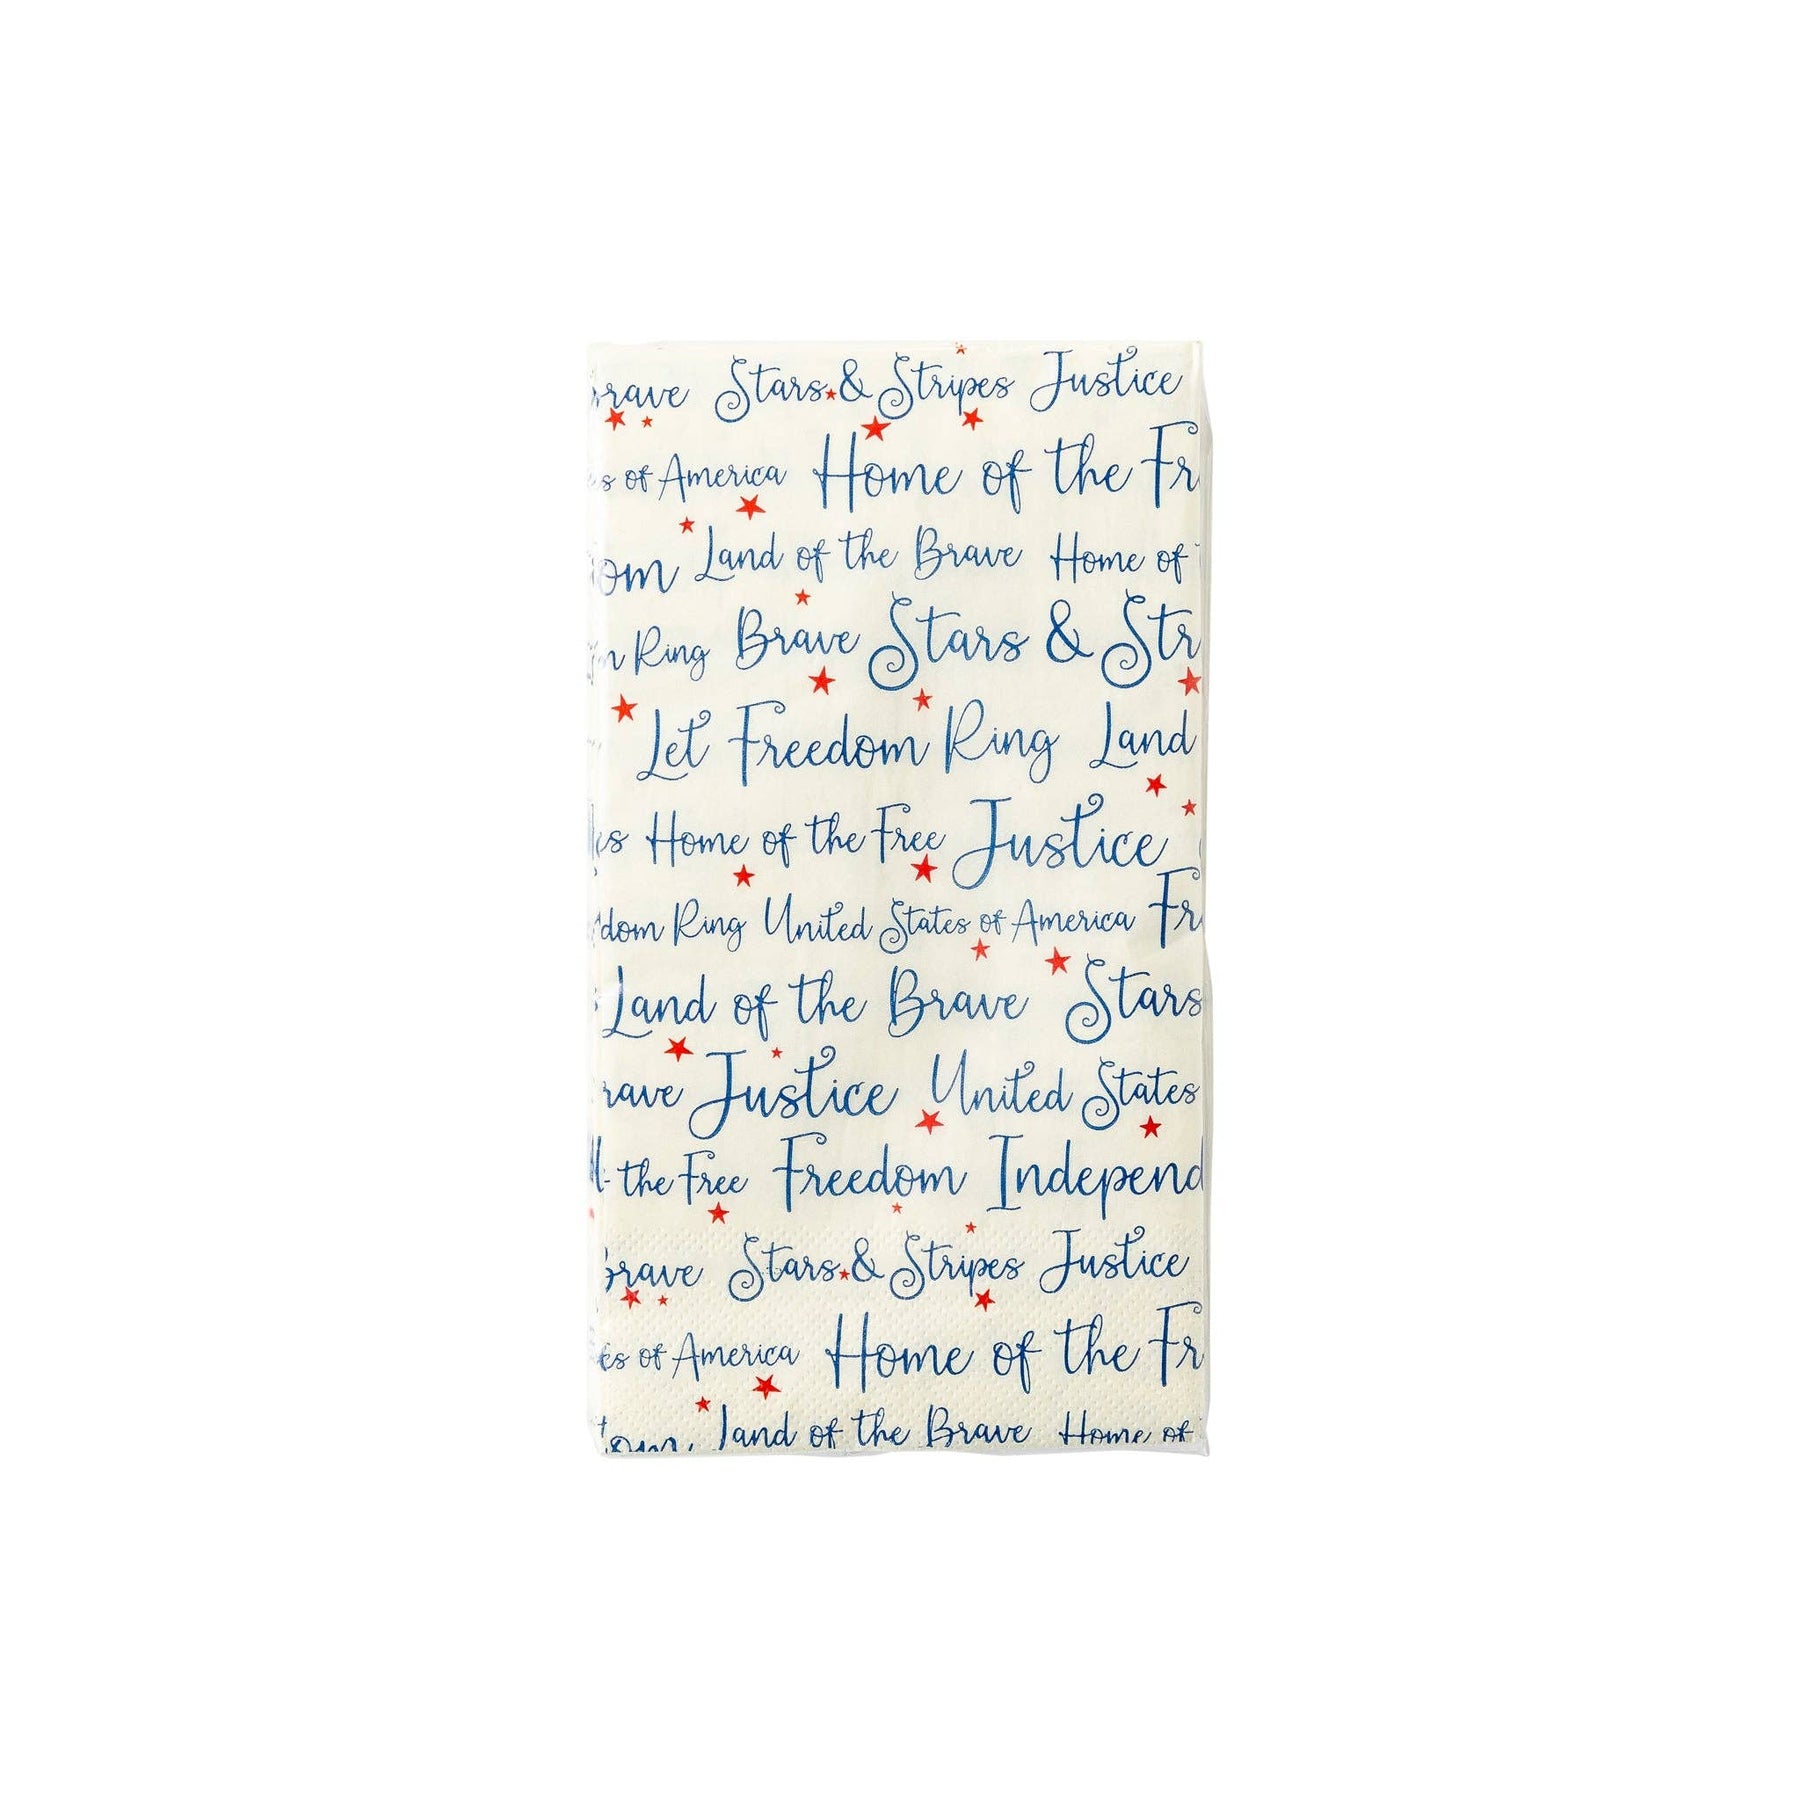 rave Stars & Stripes Justice
s of America Home of the Fr
om Land of the Brave Home of
m Ring Brave Stars & Str
Let Freedom Ring Land
es Home of the Free Justice
dom Ring United States of America Fr
Land of the Brave Stars
rave Justice United States
the Free Freedom Independ
Brave Stars & Stripes Justice
es of America Home of the Fr
om Land of the Brave Home of